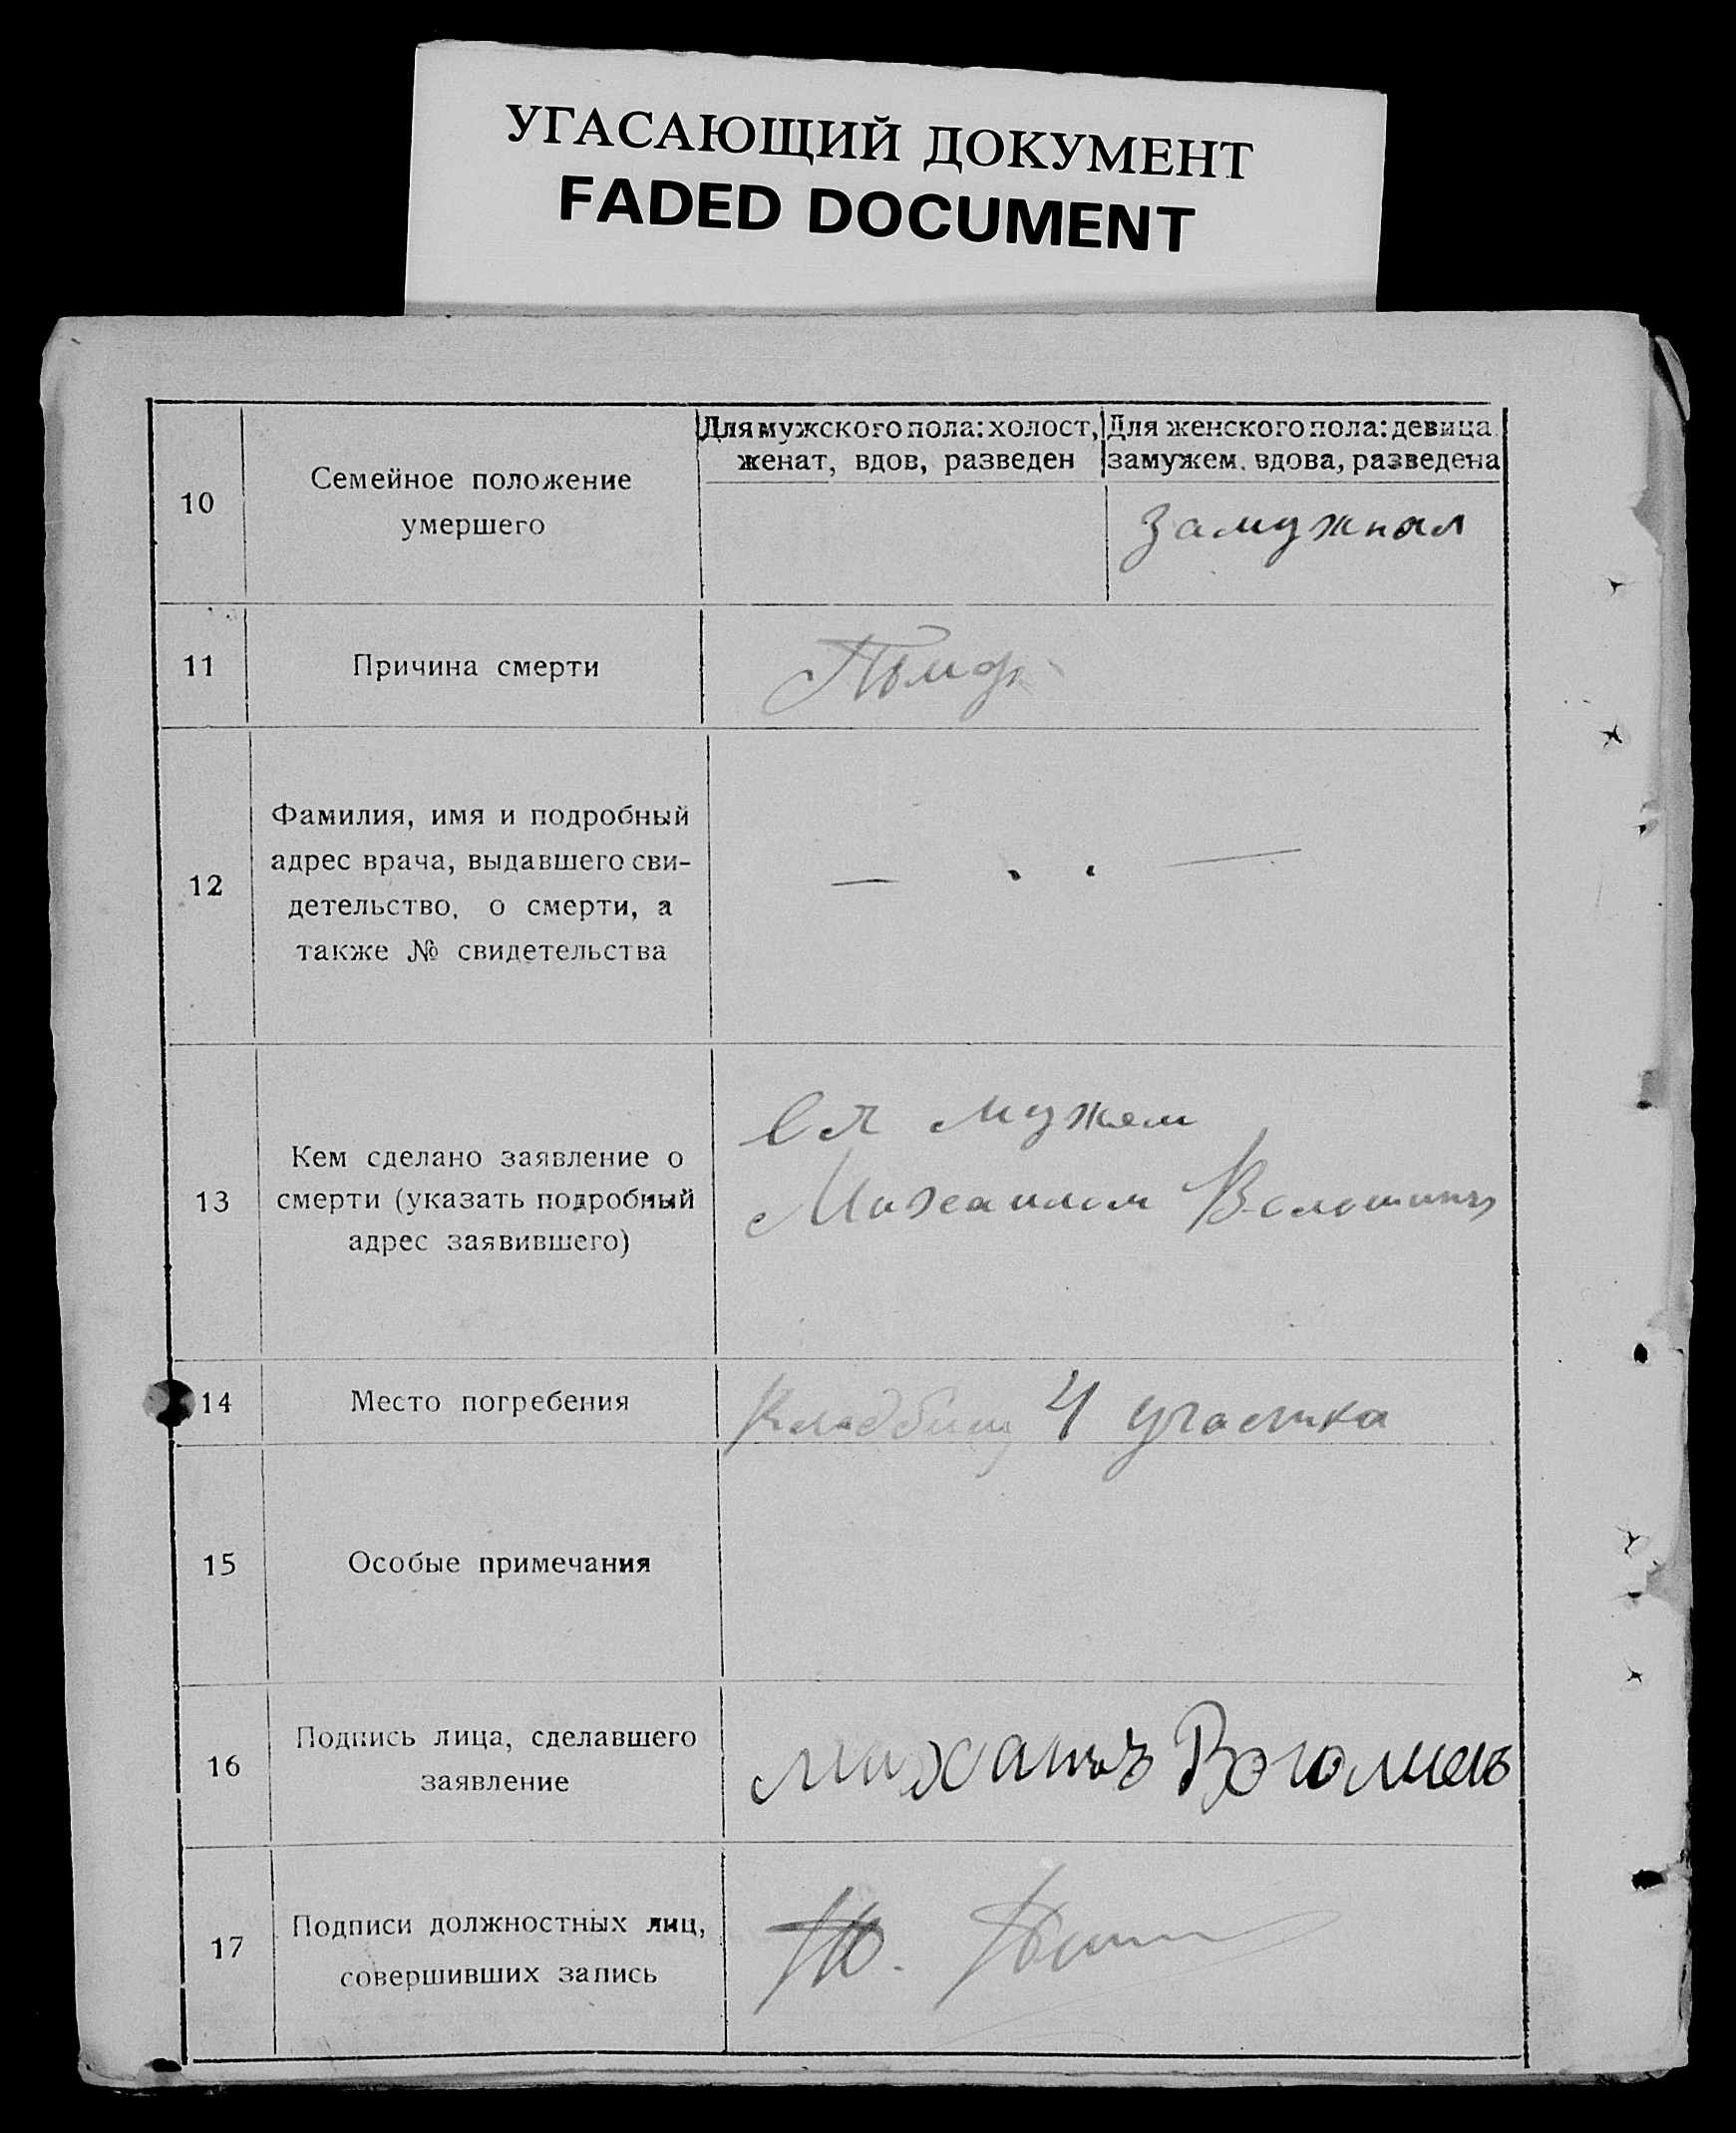 УГАСАЮЩИЙ ДОКУМЕНТ
FADED DOCUMENT
10
Семейное положение
умершего
Для мужского пола: холост,
женат, вдов, разведен
Для женского пола: девица
замужем. вдова, разведена
Замужная
11
Причина смерти
Тиф
12
Фамилия, имя и подробный
адрес врача, выдавшего сви-
детельство, о смерти, а
также № свидетельства
13
Кем сделано заявление о
смерти (указать подробный
адрес заявившего)
Ея мужем
Михаилом
14
Место погребения
4 участка
15
Особые примечания
16
Подпись лица, сделавшего
заявление
17
Подписи должностных лиц,
совершивших запись